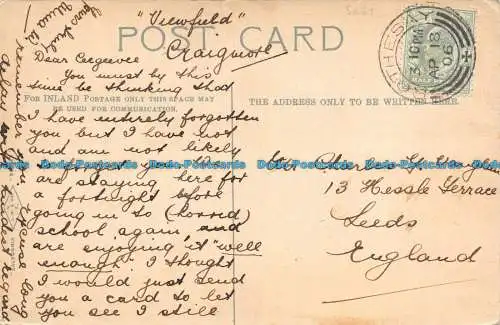 "Viewfield"
POST CARD
Craigmore
Dear
You must by this
time be thinking that
FOR INLAND POSTAGE ONLY THIS SPACE MAY
BE USED FOR COMMUNICATION.
I have entirely forgotten
you but I have not
and am not likely
to forget you. We
are staying here for
a fortnight before
going in to (horrid)
school again, and
are enjoying it "well
enough" I thought
I would just send
you a card to let
you see I still
remember you
long
THE ADDRESS ONLY TO BE WRITTEN HERE.
Charles G.
13 Hessle Terrace
Leeds
England
ROTHESAY
AP 18
06